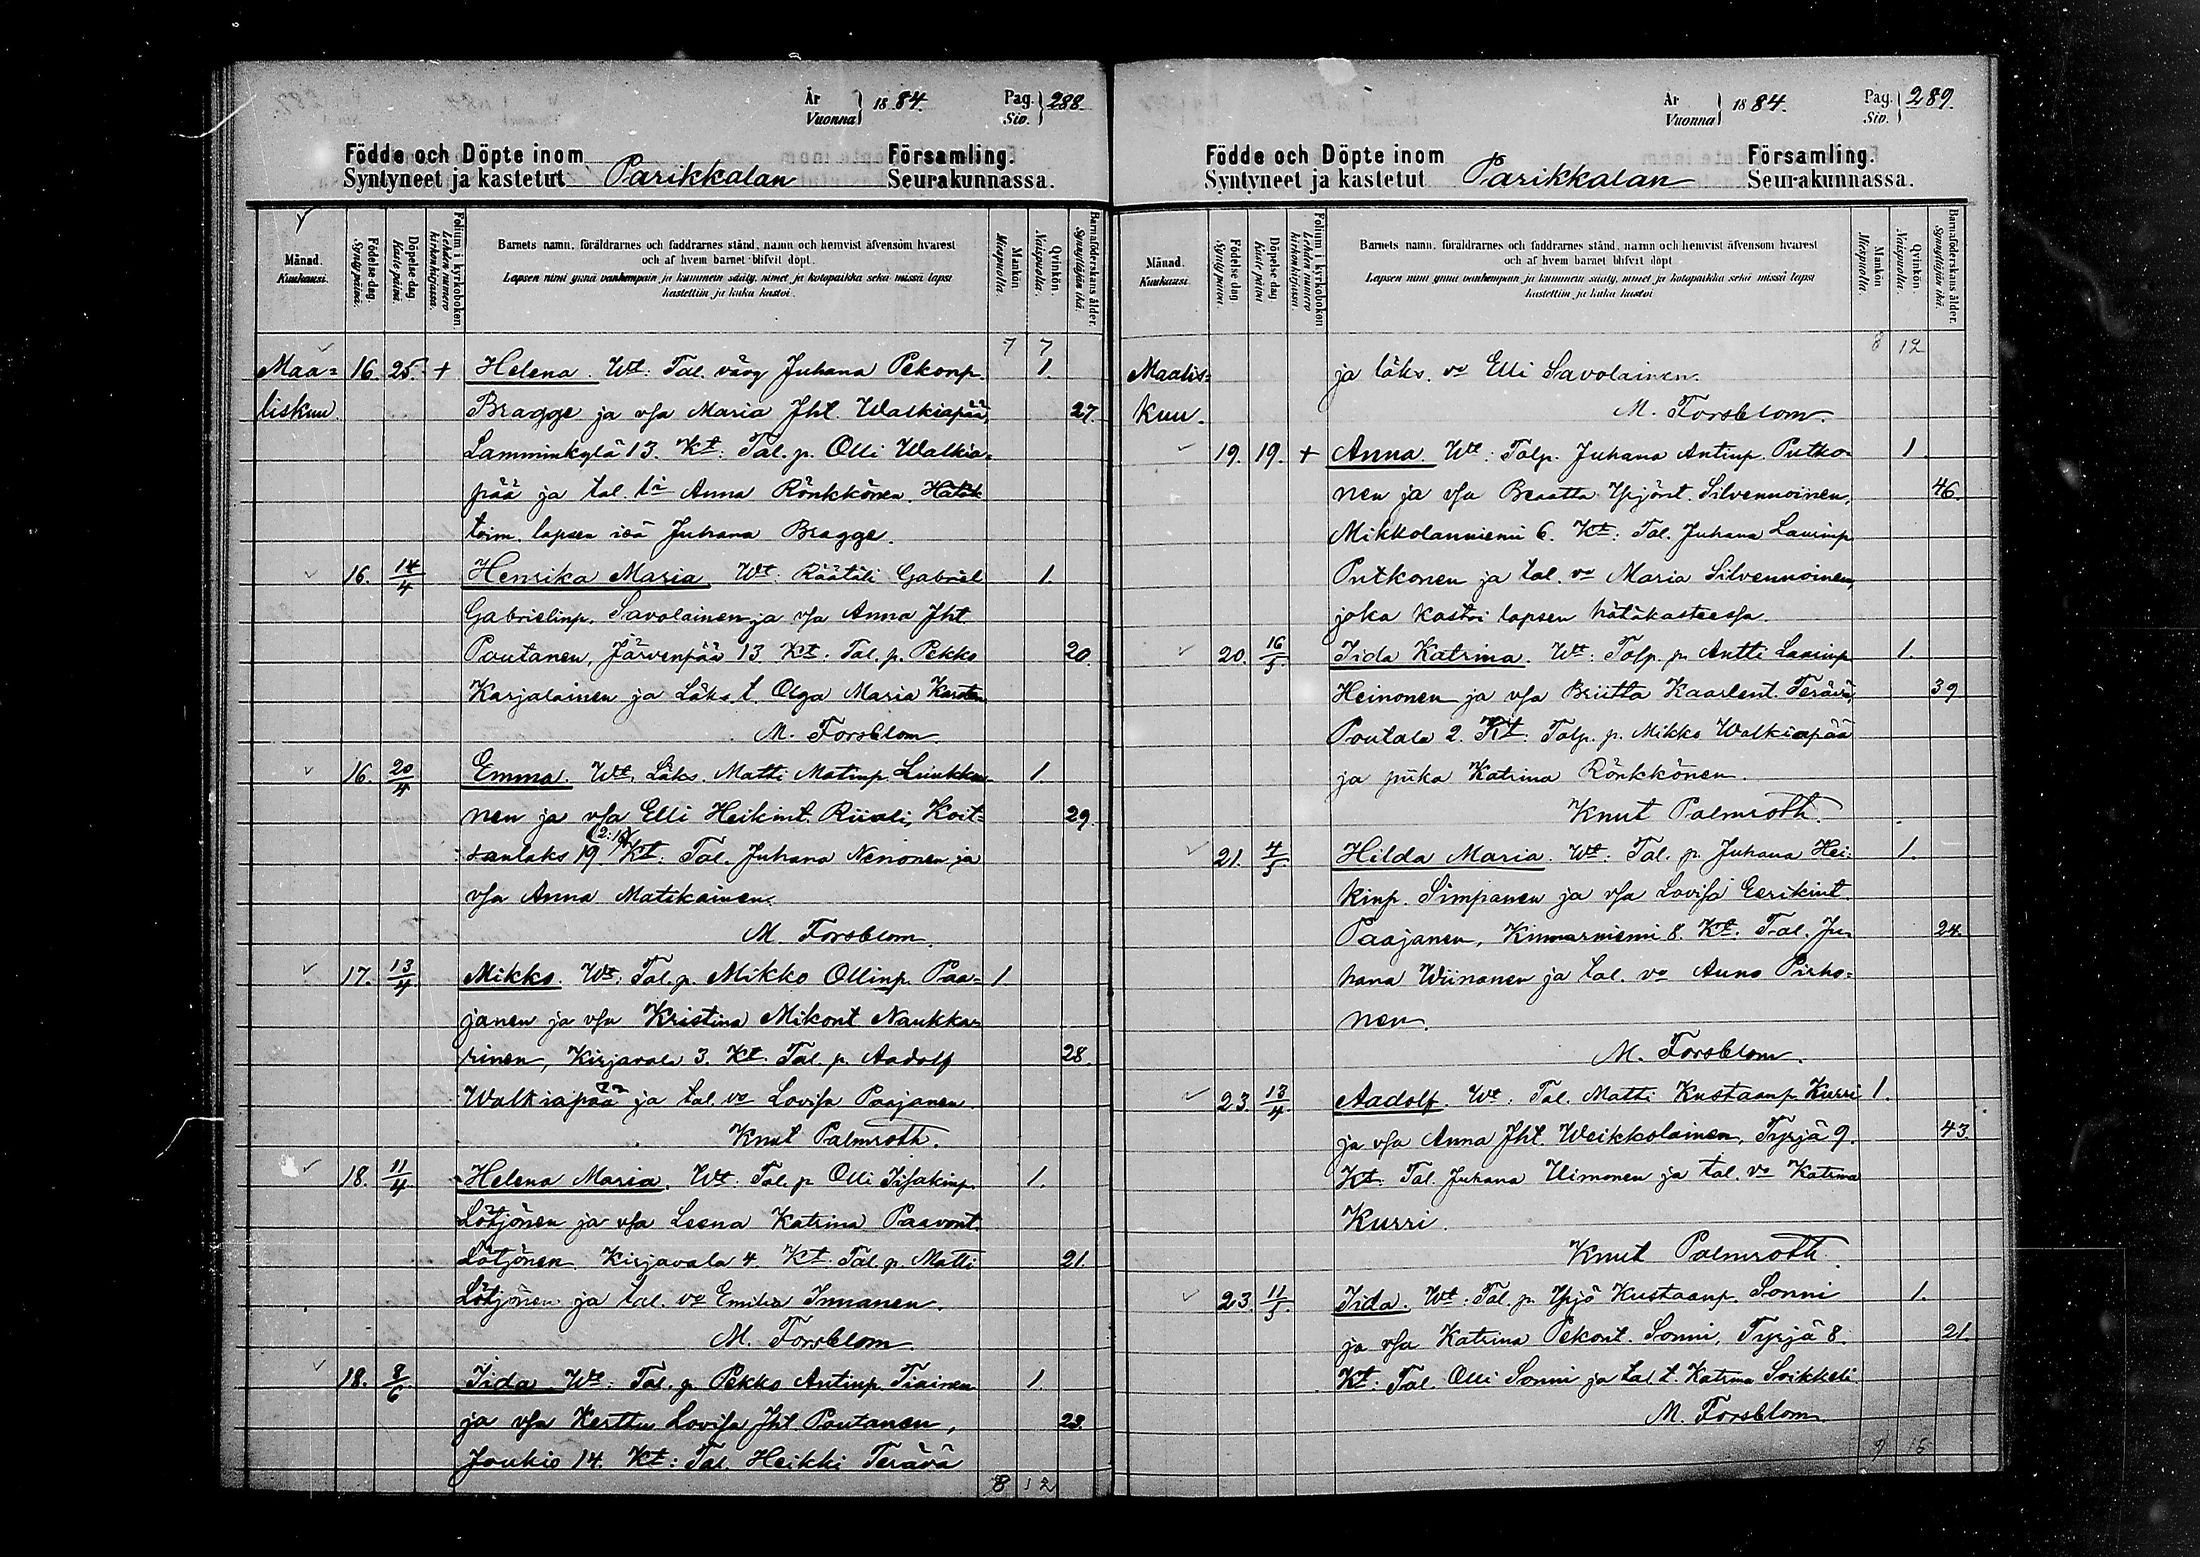 År Vuonna } 1884. Pag. Siv. } 288
Födde och Döpte inom Församling.
Syntyneet ja kastetut Parikkalan Seurakunnassa.
Månad. Kuukausi.
Födelse dag. Synty päivä.
Döpelse dag. Kaste päivä.
Folium i kyrkoboken Lehden numero kirkonkirjassa.
Barnets namn, föräldrarnes och faddrarnes stånd, namn och hemvist äfvensom hvarest
och af hvem barnet blifvit döpt.
Lapsen nimi ynnä vanhempain ja kummein sääty, nimet ja kotopaikka sekä missä lapsi
kastettiin ja kuka kastoi.
Mankön Miespuolia.
Qvinkön. Naispuolia.
Barnaföderskans ålder. Synnyttäjän ikä.
7 7
Maa= 16. 25. + Helena. Wt: Tal. väv Juhana Pekonp. 1.
liskuu. Bragge ja vsa Maria Jht. Walkiapää, 27.
Lamminkylä 13. Kt: Tal. p. Olli Walkia=
pää ja tal. tr Anna Rönkkönen. Hätäk
toim. lapsen isä Juhana Bragge.
16. 14/4 Henrika Maria. Wt: Räätäli Gabriel 1.
Gabrielinp. Savolainen ja vsa Anna Jht.
Poutanen, Järvenpää 13 Kt: Tal. p. Pekko 20.
Karjalainen ja Läks. t. Olga Maria
M. Forsblom.
16. 20/4 Emma. Wt. Läks. Matti Matinp. Liukko- 1.
nen ja vsa Elli Heikint. Riiali, Koit= 29.
sanlaks 19 Kt: Tal. Juhana Nenonen ja
vsa Anna Matikainen.
M. Forsblom.
17. 13/4 Mikko. Wt: Tal. p. Mikko Ollinp. Paa= 1.
janen ja vsa Kristina Mikont Naukka=
rinen, Kirjavala 3. Kt: Tal. p. Aadolf 28.
Walkiapää ja tal. vo Lovisa Paajanen.
Knut Palmroth.
18. 11/4 Helena Maria. Wt: Tal. p Olli Iisakinp. 1.
Lötjönen ja vsa Leena Katrina Paavont.
Lötjönen Kirjavala 4. Kt: Tal. p. Matti 21.
Lötjönen ja tal. vo Emilia Innanen.
M. Forsblom.
18. 8/6 Iida. Wt: Tal. p Pekko Antinp. Tiainen 1.
ja vsa Kerttu Lovisa Jht. Poutanen, 23.
Joukio 14. Kt: Tal. Heikki Terävä
8 12
År Vuonna } 1884. Pag. Siv. } 289.
Födde och Döpte inom Församling.
Syntyneet ja kastetut Parikkalan Seurakunnassa.
Månad. Kuukausi.
Födelse dag. Synty päivä.
Döpelse dag Kaste päivä
Folium i kyrkoboken Lehden numero kirkonkirjassa.
Barnets namn, föräldrarnes och faddrarnes stånd, namn och hemvist äfvensom hvarest
och af hvem barnet blifvit döpt
Lapsen nimi ynnä vanhempain ja kummein sääty, nimet ja kotopaikka sekä missä lapsi
kastettiin ja kuka kastoi
Mankön Miespuolia.
Qvinkön. Naispuolia.
Barnaföderskans ålder. Synnyttäjän ikä.
8 12
Maalis= ja läks. vo Elli Savolainen.
kuu. M. Forsblom.
19. 19. + Anna. Wt: Talp. Juhana Antinp. Putko- 1.
nen ja vsa Beaatta Yrjönt. Silvennoinen, 46.
Mikkolanniemi 6. Kt: Tal. Juhana Laurinp
Putkonen ja tal. vo Maria Silvennoinen,
joka kastoi lapsen hätäkasteessa.
20. 16/5 Iida Katrina. Wt: Talp. p. Antti Laurinp 1.
Heinonen ja vsa Briitta Kaarlent. Terävä, 39
Poutala 2. Kt: Talp. p. Mikko Walkiapää
ja piika Katrina Rönkkönen.
Knut Palmroth.
21. 4/5 Hilda Maria. Wt: Tal. p. Juhana Hei- 1.
kinp. Simpanen ja vsa Lovisa Eerikint.
Paajanen, Kinnarniemi 8. Kt: Tal. Ju- 24.
hana Wiinanen ja tal. vo Anna Pirho=
nen.
M. Forsblom.
23. 13/4. Aadolf. Wt: Tal. Matti Kustaanp. Kurri 1.
ja vsa Anna Jht. Weikkolainen, Tyrjä 9. 43.
Kt: Tal. Juhana Uimonen ja tal. vo Katrina
Kurri.
Knut Palmroth.
23. 11/5. Iida. Wt: Tal. p. Yrjö Kustaanp. Sonni 1.
ja vsa Katrina Pekont. Sonni, Tyrjä 8. 21.
Kt: Tal. Olli Sonni ja tal. t. Katrina Soikkeli
M. Forsblom.
9 15